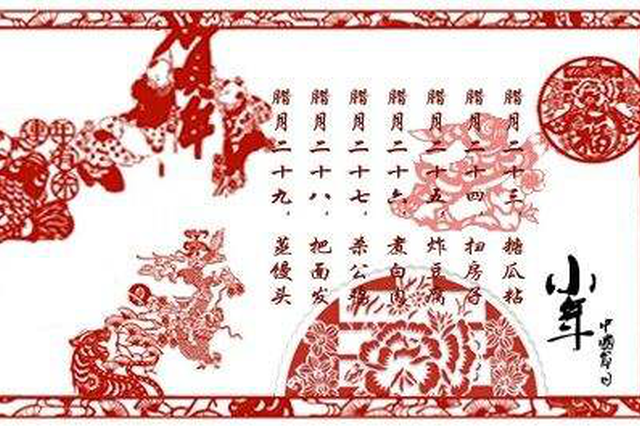 福
小年
中國節日
腊月二十三，糖瓜粘
腊月二十四，扫房子
腊月二十五，炸豆腐
腊月二十六，煮白肉
腊月二十七，杀公鸡
腊月二十八，把面发
腊月二十九，蒸馒头
贺年